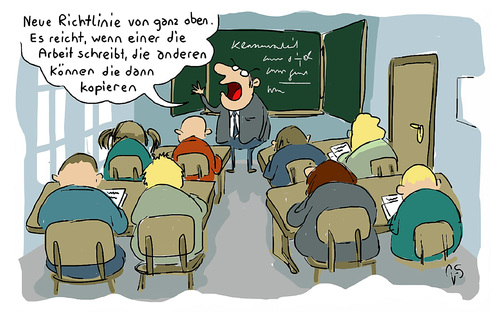 Neue Richtlinie von ganz oben.
Es reicht, wenn einer die
Arbeit schreibt, die anderen
können die dann
kopieren